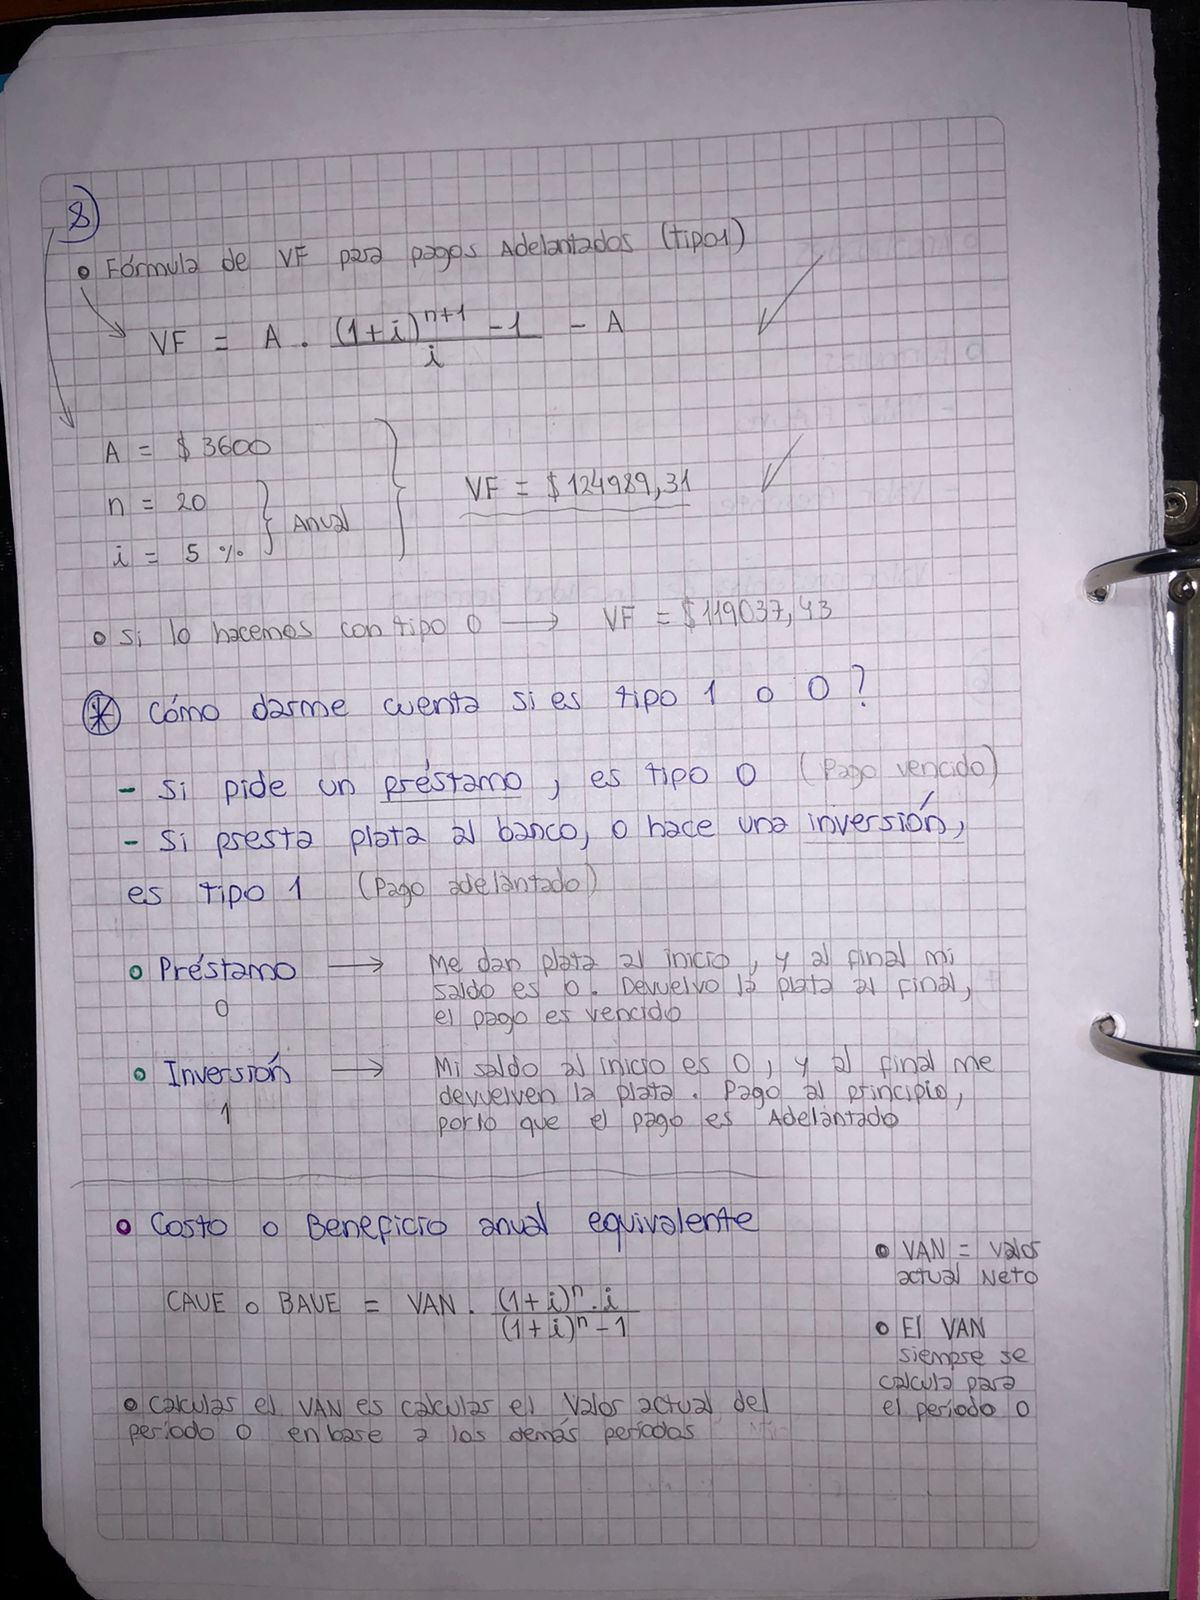 8)
• Fórmula de VF para pagos Adelantados (tipo 1)
VF = A . (1+i)^(n+1) - 1 / i - A
A = $ 3600
n = 20
i = 5 %
Anual
VF = $ 124989,31
• Si lo hacemos con tipo 0 → VF = $ 119037,43
* Cómo darme cuenta si es tipo 1 o 0?
- Si pide un préstamo, es tipo 0 (Pago vencido)
- Si presta plata al banco, o hace una inversión,
es tipo 1 (Pago adelantado)
• Préstamo → Me dan plata al inicio, y al final mi
saldo es 0. Devuelvo la plata al final,
0
el pago es vencido
• Inversión → Mi saldo al inicio es 0, y al final me
devuelven la plata. Pago al principio,
1
por lo que el pago es Adelantado
• Costo o Beneficio anual equivalente
CAUE o BAUE = VAN . (1+i)^n . i / (1+i)^n - 1
• Calcular el VAN es calcular el Valor actual del
período 0 en base a los demás períodos
• VAN = Valor
actual Neto
• El VAN
siempre se
calcula para
el período 0